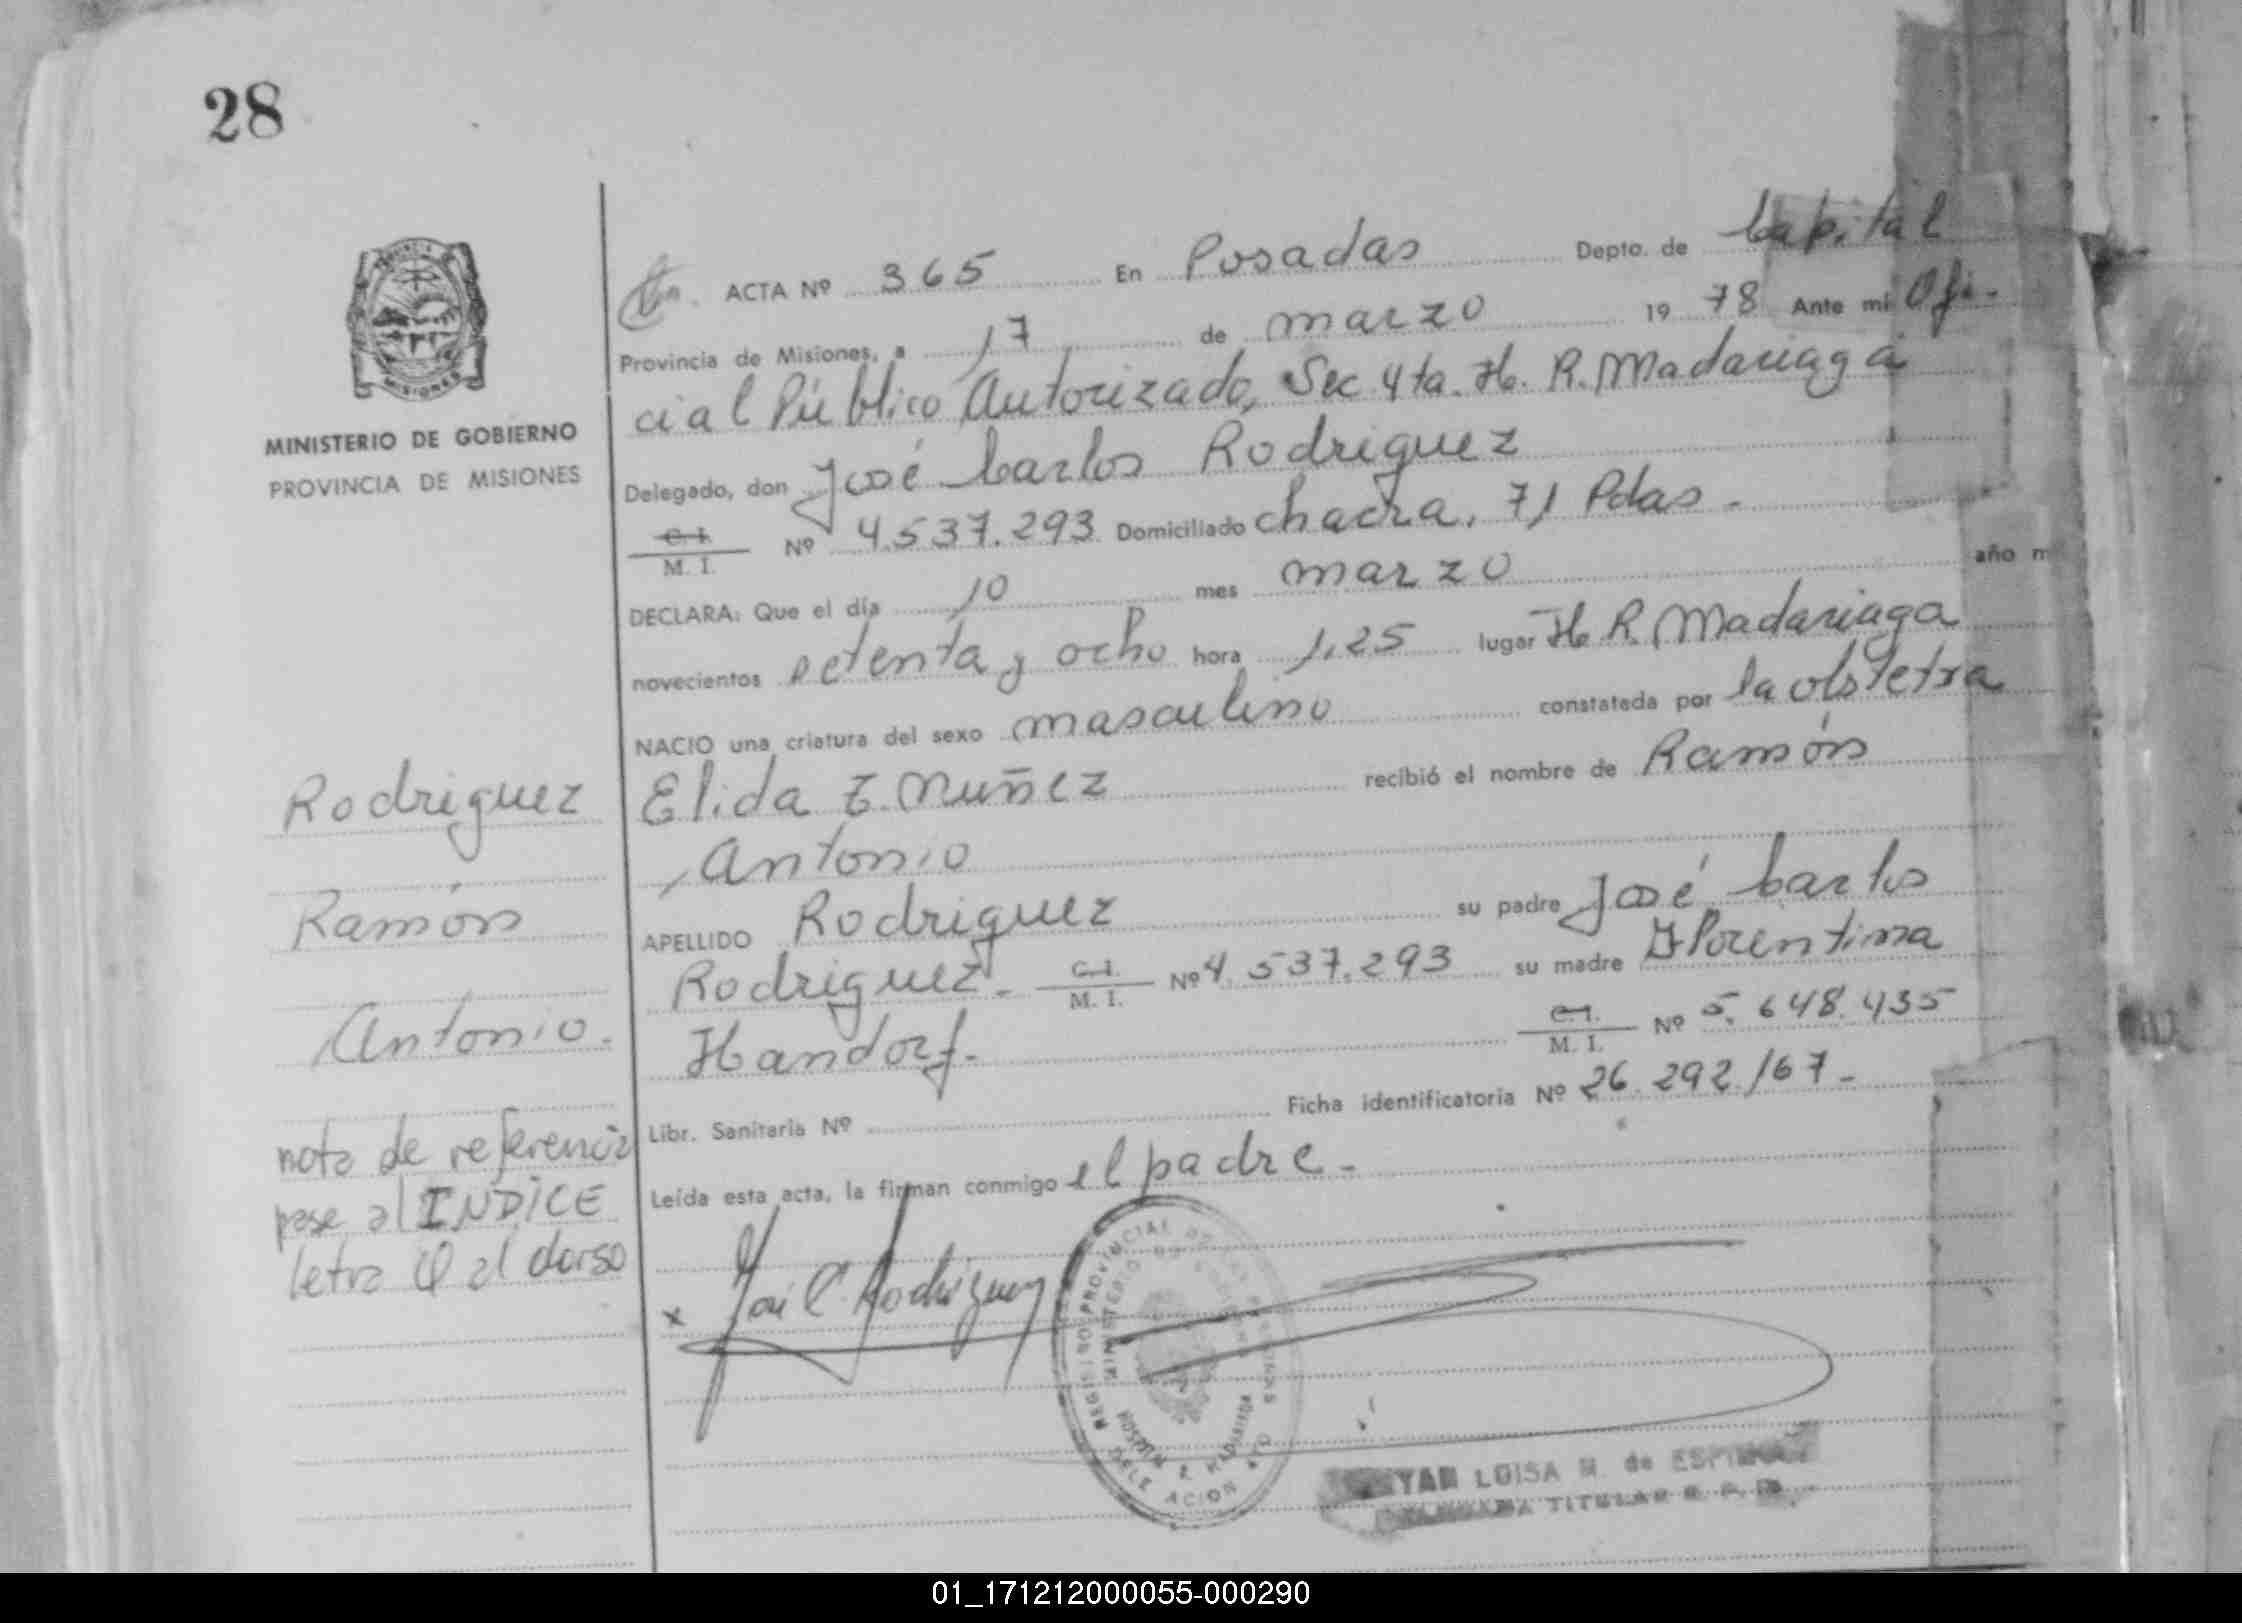 28
PROVINCIA
MISIONES
MINISTERIO DE GOBIERNO
PROVINCIA DE MISIONES
Rodriguez
Ramón
Antonio.
nota de referencia
pase al INDICE
letra Q al dorso
ACTA Nº 365 En Posadas Depto. de Capital
Provincia de Misiones, a 17 de marzo 1978 Ante mi Ofi-
cial Público Autorizado, Sec 4ta. H. R. Madariaga
Delegado, don José Carlos Rodriguez
C.I. M. I. Nº 4.537.293 Domiciliado chacra. 71 Pdas.-
DECLARA: Que el día 10 mes marzo año m
novecientos setenta y ocho hora 1,25 lugar H. R. Madariaga
NACIO una criatura del sexo masculino constatada por la obstetra
Elida E. Nuñez recibió el nombre de Ramón
Antonio
APELLIDO Rodriguez su padre José Carlos
Rodriguez.- C.I. M. I. Nº 4.537.293 su madre Florentina
Handorf.- C.I. M. I. Nº 5.648.435
Libr. Sanitaria Nº Ficha identificatoria Nº 26.292/67.-
Leída esta acta, la firman conmigo el padre.-
x José C. Rodriguez
REGISTRO PROVINCIAL DE LAS PERSONAS
MINISTERIO DE GOBIERNO
HOSPITAL R. MADARIAGA
DELEGACION
LUISA M. de
TITULAR R. P. P.
01_171212000055-000290